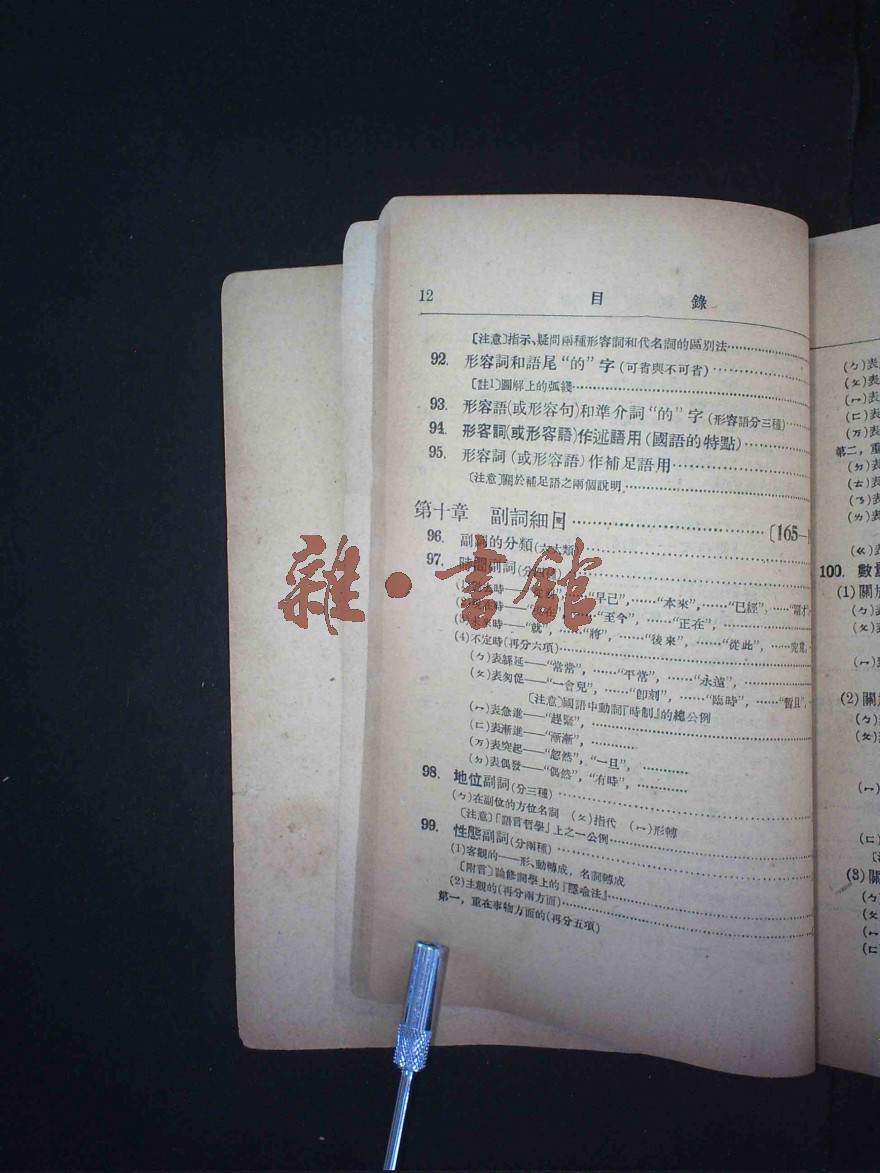 12 目 錄
〔注意〕指示、疑問兩種形容詞和代名詞的區別法
92. 形容詞和語尾“的”字(可省與不可省)
〔註1〕圖解上的弧綫
93. 形容語(或形容句)和準介詞“的”字(形容語分三種)
94. 形容詞(或形容語)作述語用(國語的特點)
95. 形容詞(或形容語)作補足語用
〔注意〕關於補足語之兩個說明
第十章 副詞細目〔165—
96. 副詞的分類(六大類)
97. 時間副詞(分四項)
“早已”,……“本來”,……“已經”,
“至今”,……“正在”,
(3)未來時——“就”,……“將”,……“後來”,……“從此”,
(4)不定時(再分六項)
(ㄅ)表緜延——“常常”,……“平常”,……“永遠”,
(ㄆ)表匆促——“一會兒”,……“卽刻”,……“臨時”,……“暫且”,
〔注意〕國語中動詞『時制』的總公例
(ㄇ)表急進——“趕緊”,
(ㄈ)表漸進——“漸漸”,
(万)表突起——“忽然”,“一旦”,
(ㄉ)表偶發——“偶然”,“有時”,
98. 地位副詞(分三種)
(ㄅ)在副位的方位名詞 (ㄆ)指代 (ㄇ)形轉
〔注意〕「語言哲學」上之一公例
99. 性態副詞(分兩種)
(1)客觀的——形、動轉成,名詞轉成
〔附言〕論修詞學上的『隱喻法』
(2)主觀的(再分兩方面)
第一,重在事物方面的(再分五項)
雜·書館
(ㄅ)表
(ㄆ)表
(ㄇ)表
(ㄈ)表
(万)表
第二,重
(ㄉ)表
(ㄊ)表
(ㄋ)表
(ㄌ)表
(ㄍ)表
100. 數量
(1)關於
(ㄅ)表
(ㄆ)表
(ㄇ)表
(2)關
(ㄅ)
(ㄆ)
(ㄇ)
(ㄈ)
(3)關
(ㄅ)
(ㄆ)
(ㄇ)
(ㄈ)